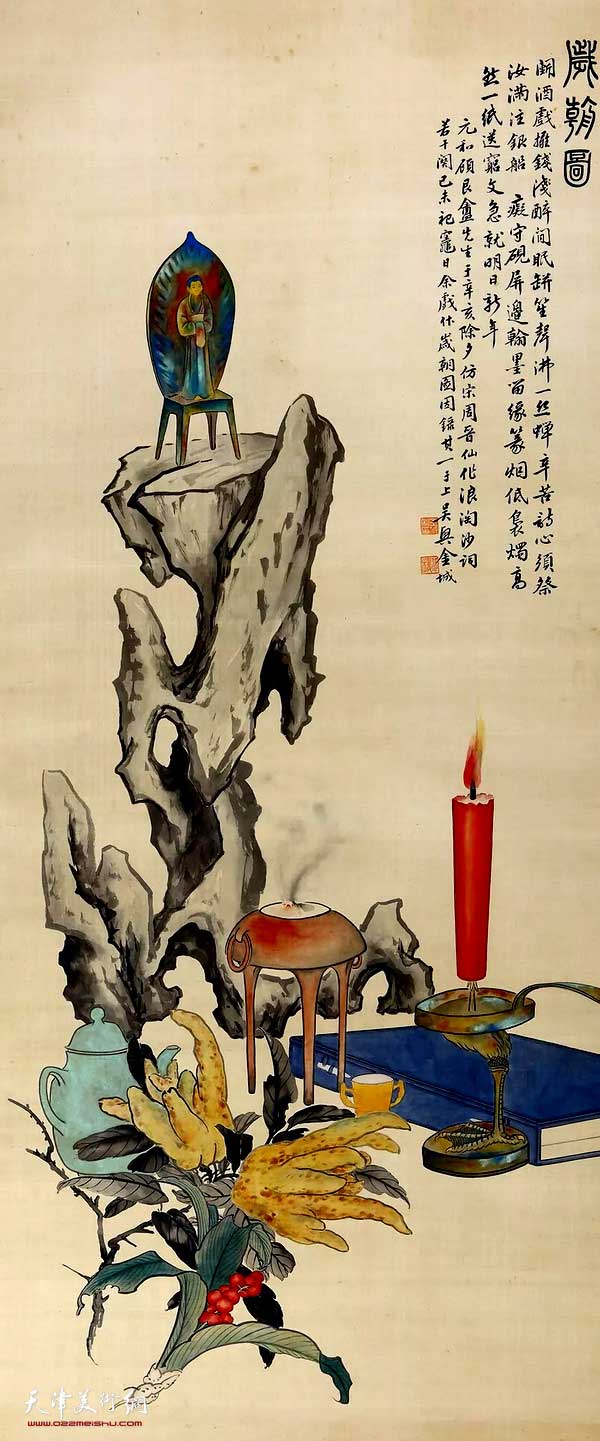 歲朝圖
鬬酒戲攤錢淺醉間眠缾笙聲沸一絲蟬辛苦詩心須祭
汝滿注銀船 癡守硯屏邊翰墨因緣篆烟低裊燭高
然一紙送窮文急就明日新年
元和顧艮盦先生于辛亥除夕仿宋周晉仙作浪淘沙詞
若干闋己未祀竈日余戲作歲朝圖因錄其一于上吴興金城
天津美術網
www.022meishu.com